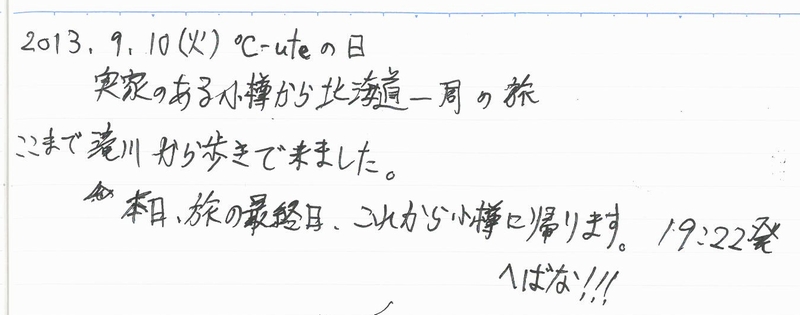 2013.9.10(火) ℃-uteの日
実家のある小樽から北海道一周の旅
ここまで滝川から歩きで来ました。
本日、旅の最終日、これから小樽に帰ります。 19:22発
へばな!!!